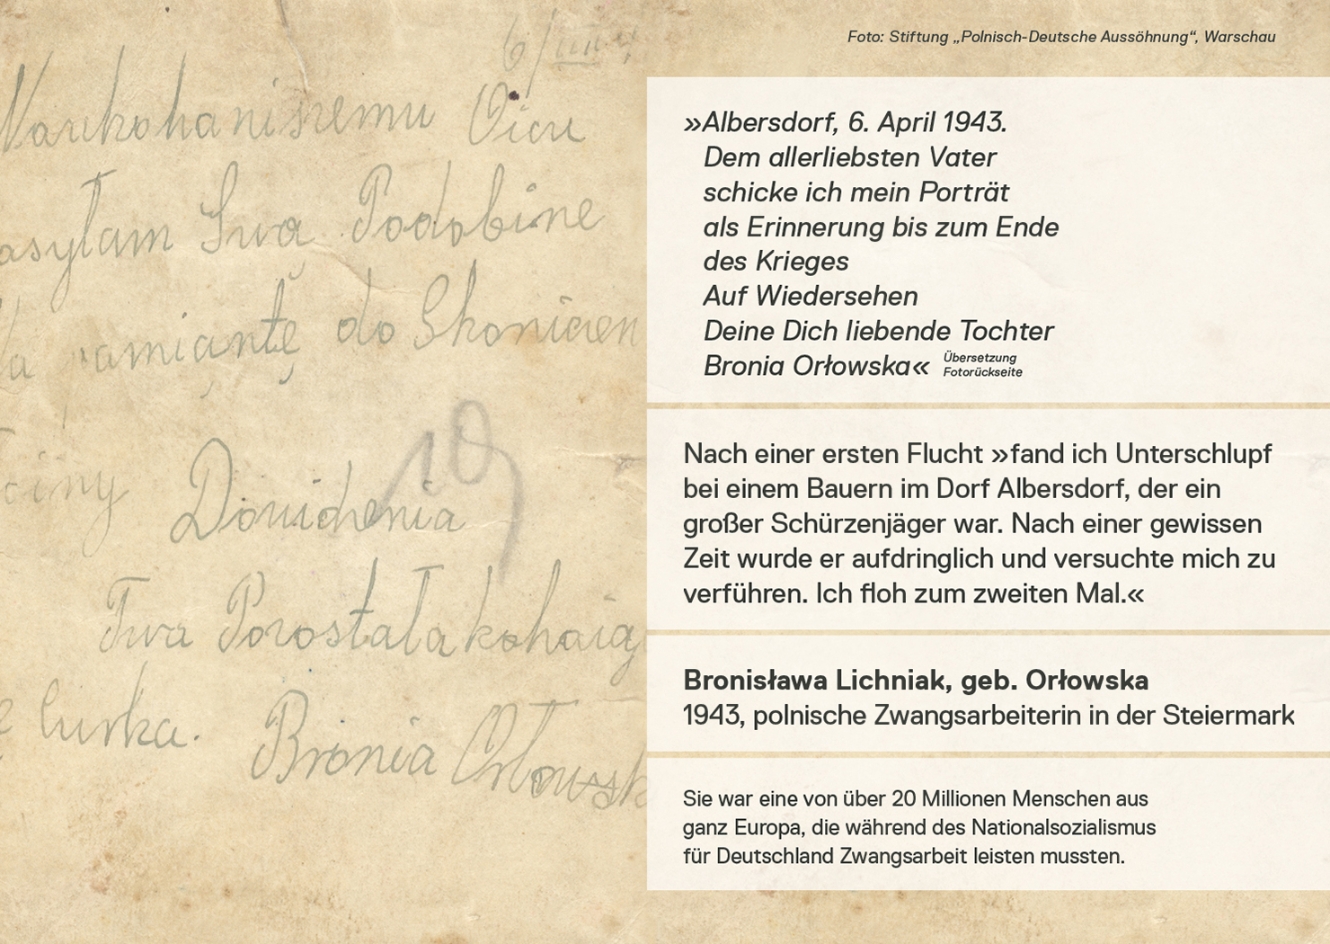 Foto: Stiftung „Polnisch-Deutsche Aussöhnung“, Warschau
6/
Oicu
Swą Podobine
do Skonicen
Dowidzenia
19
Twa Porostała kohaią
curka.
Bronia Orłowsk
»Albersdorf, 6. April 1943.
Dem allerliebsten Vater
schicke ich mein Porträt
als Erinnerung bis zum Ende
des Krieges
Auf Wiedersehen
Deine Dich liebende Tochter
Bronia Orłowska« Übersetzung
Fotorückseite
Nach einer ersten Flucht »fand ich Unterschlupf
bei einem Bauern im Dorf Albersdorf, der ein
großer Schürzenjäger war. Nach einer gewissen
Zeit wurde er aufdringlich und versuchte mich zu
verführen. Ich floh zum zweiten Mal.«
Bronisława Lichniak, geb. Orłowska
1943, polnische Zwangsarbeiterin in der Steiermark
Sie war eine von über 20 Millionen Menschen aus
ganz Europa, die während des Nationalsozialismus
für Deutschland Zwangsarbeit leisten mussten.